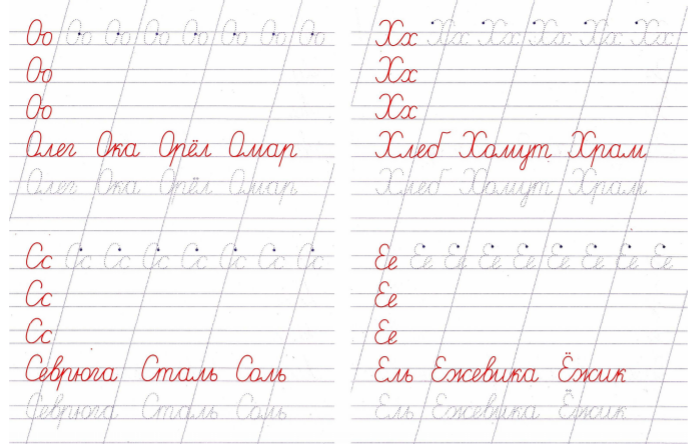 Оо Оо Оо Оо Оо Оо Оо Оо
Оо
Оо
Олег Ока Орёл Омар
Олег Ока Орёл Омар
Сс Сс Сс Сс Сс Сс Сс Сс
Сс
Сс
Севрюга Сталь Соль
Севрюга Сталь Соль
Хх Хх Хх Хх Хх Хх
Хх
Хх
Хлеб Хомут Храм
Хлеб Хомут Храм
Ее Ее Ее Ее Ее Ее Ее Ее Ее
Ее
Ее
Ель Ежевика Ёжик
Ель Ежевика Ёжик